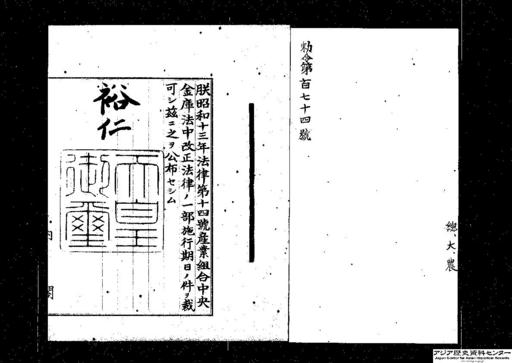 勅令第百七十四號
總、大、農
朕昭和十三年法律第十四號産業組合中央
金庫法中改正法律ノ一部施行期日ノ件ヲ裁
可シ茲ニ之ヲ公布セシム
裕仁
天皇
御璽
内閣
アジア歴史資料センター
Japan Center for Asian Historical Records